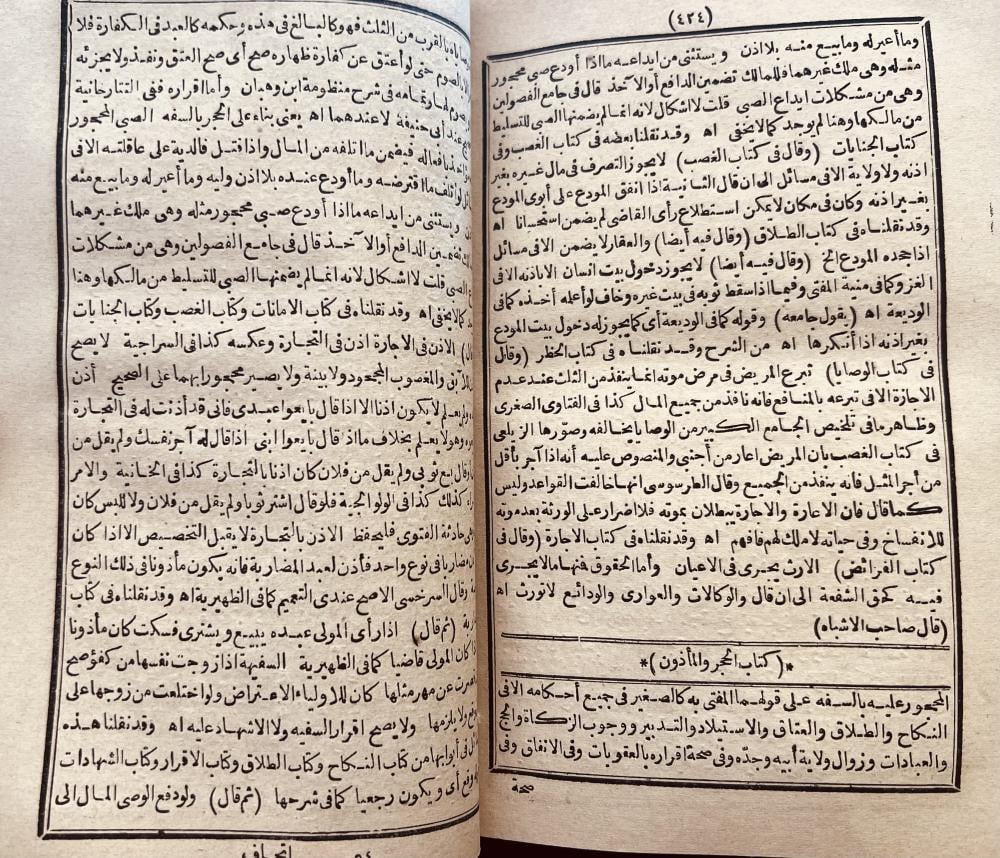 (٤٣٤)
وما أعبر له وما بيع منه بلا اذن ويستثنى من ايداعه ما اذا أودع صبى محجور
مثله وهى ملك غيرهما فللمالك تضمين الدافع أو الآخذ قال فى جامع الفصولين
وهى من مشكلات ايداع الصبى قلت لا اشكال لانه انما لم يضمنها الصبى للتسليط
من مالكها وهنا لم يوجد كما لا يخفى اه وقد نقلنا بعضه فى كتاب الغصب وفى
كتاب الجنايات (وقال فى كتاب الغصب) لا يجوز التصرف فى مال غيره بغير
اذنه ولا ولاية الا فى مسائل الى ان قال الثانية اذا انفق المودع على أبوى المودع
بغير اذنه وكان فى مكان لا يمكن استطلاع رأى القاضى لم يضمن استحسانا اه
وقد نقلناه فى كتاب الطلاق (وقال فيه أيضا) والعقار لا يضمن الا فى مسائل
اذا جحده المودع الخ (وقال فيه أيضا) لا يجوز دخول بيت انسان الا باذنه الا فى
الغزو كما فى منية المفتى وفيما اذا سقط ثوبه فى بيت غيره وخاف لو أعلمه أخذه كما فى
الوديعه اه (يقول جامعه) وقوله كما فى الوديعة أى كما يجوز له دخول بيت المودع
بغير اذنه اذا أنكرها اه من الشرح وقد نقلناه فى كتاب الحظر (وقال
فى كتاب الوصايا) تبرع المريض فى مرض موته انما ينفذ من الثلث عند عدم
الاجازة الا فى تبرعه بالمنافع فانه نافذ من جميع المال كذا فى الفتاوى الصغرى
وظاهر ما فى تلخيص الجامع الكبير من الوصايا يخالفه وصورها الزيلعى
فى كتاب الغصب بان المريض اعار من أجنبى والمنصوص عليه أنه اذا آجر بأقل
من أجر المثل فانه ينفذ من الجميع وقال الطرسوسى انها خالفت القواعد وليس
كما قال فان الاعارة والاجارة يبطلان بموته فلا اضرار على الورثة بعد موته
للانفساخ وفى حياته لا ملك لهم فافهم اه وقد نقلناه فى كتاب الاجارة (وقال فى
كتاب الفرائض) الارث يجرى فى الاعيان وأما الحقوق فمنها ما لا يجرى
فيه كحق الشفعة الى ان قال والوكالات والعوارى والودائع لا تورث اه
(قال صاحب الاشباه)
*(كتاب الحجر والمأذون)*
المحجور عليه بالسفه على قولهما المفتى به كالصغير فى جميع أحكامه الا فى
النكاح والطلاق والعتاق والاستيلاد والتدبير ووجوب الزكاة والحج
والعبادات وزوال ولاية أبيه وجده وفى صحة اقراره بالعقوبات وفى الانفاق وفى
صحة
بالقرب من الثلث فهو كالبالغ فى هذه وحكمه كالعبد فى الكفارة فلا
الا بالصوم حتى لو أعتق عن كفارة ظهاره صح أى صح العتق ونفذ ولا يجزئه
تمامه فى شرح منظومة ابن وهبان وأما اقراره ففى التتارخانية
عند أبى حنيفة لا عندهما اه يعنى بناء على الحجر بالسفه الصبى المحجور
بافعاله فيضمن ما اتلفه من المال واذا قتل فالدية على عاقلته الا فى
لو أتلف ما اقترضه وما أودع عنده بلا اذن وليه وما أعبر له وما بيع منه
ويستثنى من ايداعه ما اذا أودع صبى محجور مثله وهى ملك غيرهما
تضمين الدافع أو الآخذ قال فى جامع الفصولين وهى من مشكلات
الصبى قلت لا اشكال لانه انما لم يضمنها الصبى للتسليط من مالكها وهنا
كما لا يخفى اه وقد نقلناه فى كتاب الامانات وكتاب الغصب وكتاب الجنايات
الاذن فى الاجارة اذن فى التجارة وعكسه كذا فى السراجية لا يصح
والمغصوب المجحود ولا بينة ولا يصير محجورا بهما على الصحيح أذن
لا يكون اذنا الا اذا قال بايعوا عبدى فانى قد أذنت له فى التجارة
وهو لا يعلم بخلاف ما اذا قال بايعوا ابنى اذا قال له آجر نفسك ولم يقل من
قال بيع ثوبى ولم يقل من فلان كان اذنا بالتجارة كذا فى الخانية والامر
كذلك كذا فى الولوالجية فلو قال اشتر ثوبا ولم يقل من فلان ولا للبس كان
حادثة الفتوى فليحفظ الاذن بالتجارة لا يقبل التخصيص الا اذا كان
مضاربا فى نوع واحد فأذن لعبد المضاربة فانه يكون مأذونا فى ذلك النوع
وقال السرخسى الاصح عندى التعميم كما فى الظهيرية اه وقد نقلناه فى كتاب
(ثم قال) اذا رأى المولى عبده يبيع ويشترى فسكت كان مأذونا
كان المولى قاضيا كما فى الظهيرية السفيهة اذا زوجت نفسها من كفؤ صح
عن مهر مثلها كان للاولياء الاعتراض ولو اختلعت من زوجها على
ولا يلزمها ولا يصح اقرار السفيه ولا الاشهاد عليه اه وقد نقلنا هذه
فى أبوابها من كتاب النكاح وكتاب الطلاق وكتاب الاقرار وكتاب الشهادات
وقع أى ويكون رجعيا كما فى شرحها (ثم قال) ولو دفع الوصى المال الى